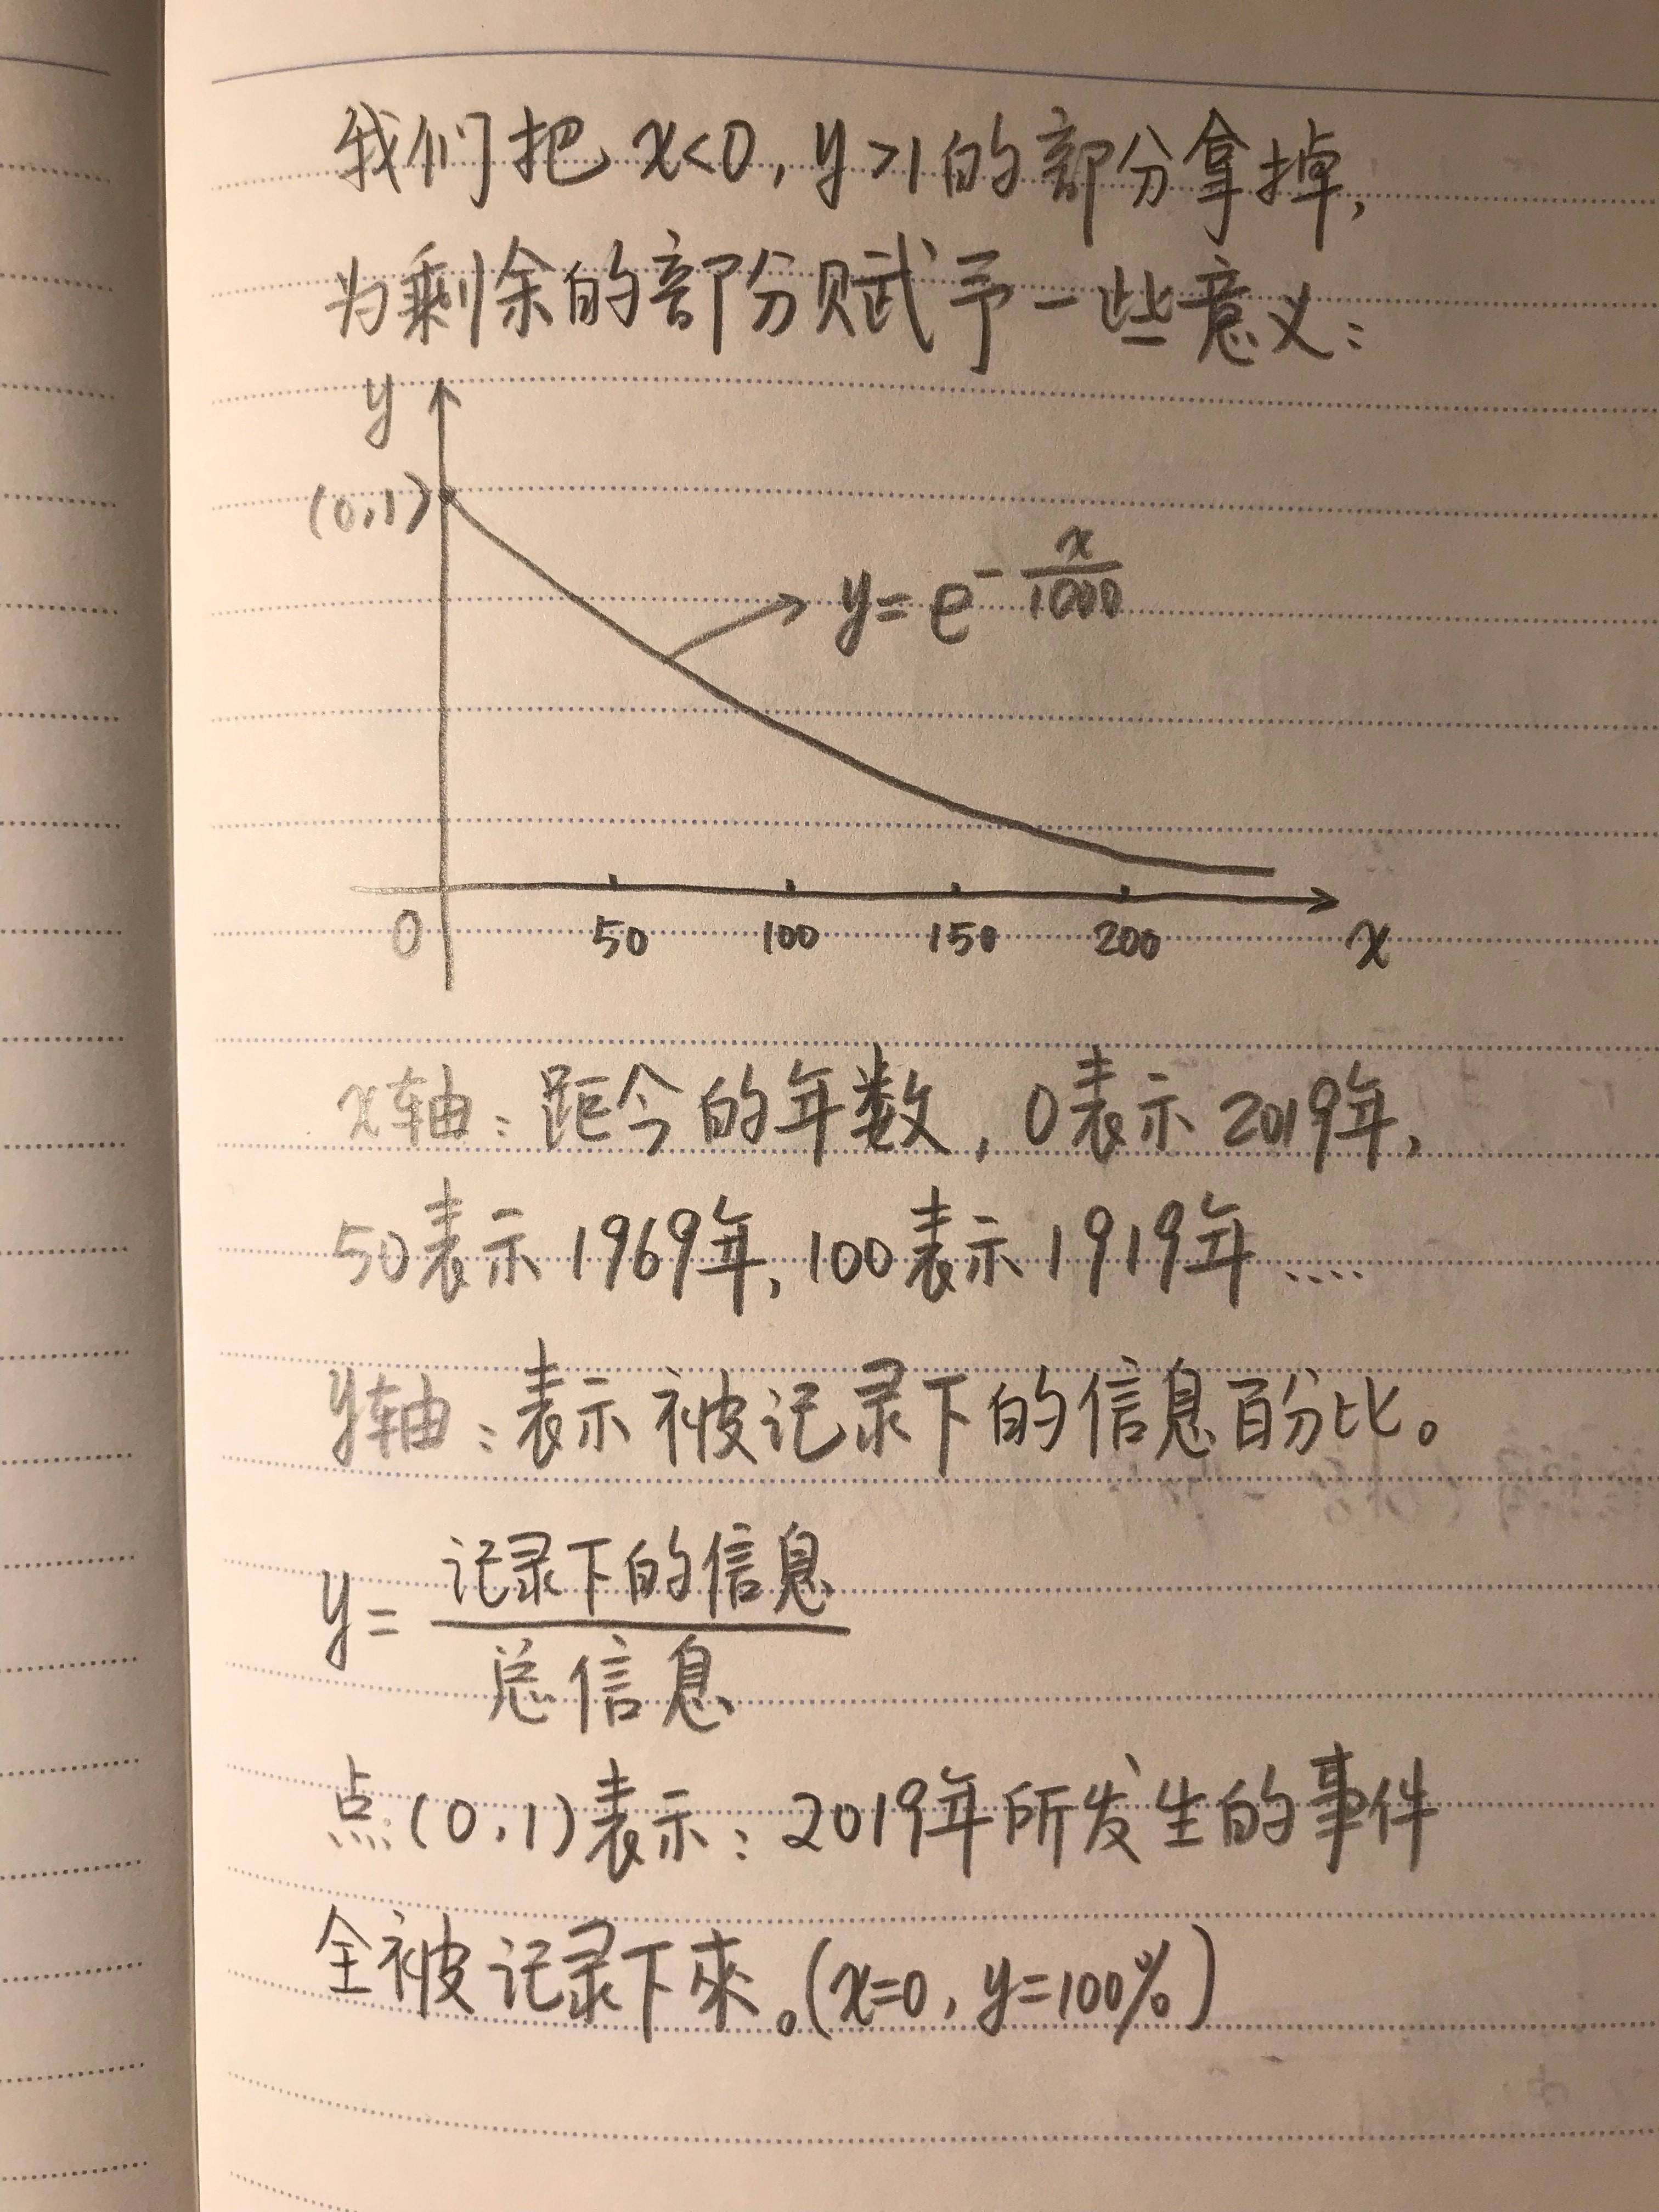 我们把 x<0, y>1 的部分拿掉,
为剩余的部分赋予一些意义:
y
(0,1)
y=e^{-\frac{x}{1000}}
0 50 100 150 200 x
x轴: 距今的年数, 0表示 2019年,
50表示 1969年, 100表示 1919年 ....
y轴: 表示被记录下的信息百分比。
y= \frac{记录下的信息}{总信息}
点(0,1)表示: 2019年所发生的事件
全被记录下來。(x=0, y=100%)